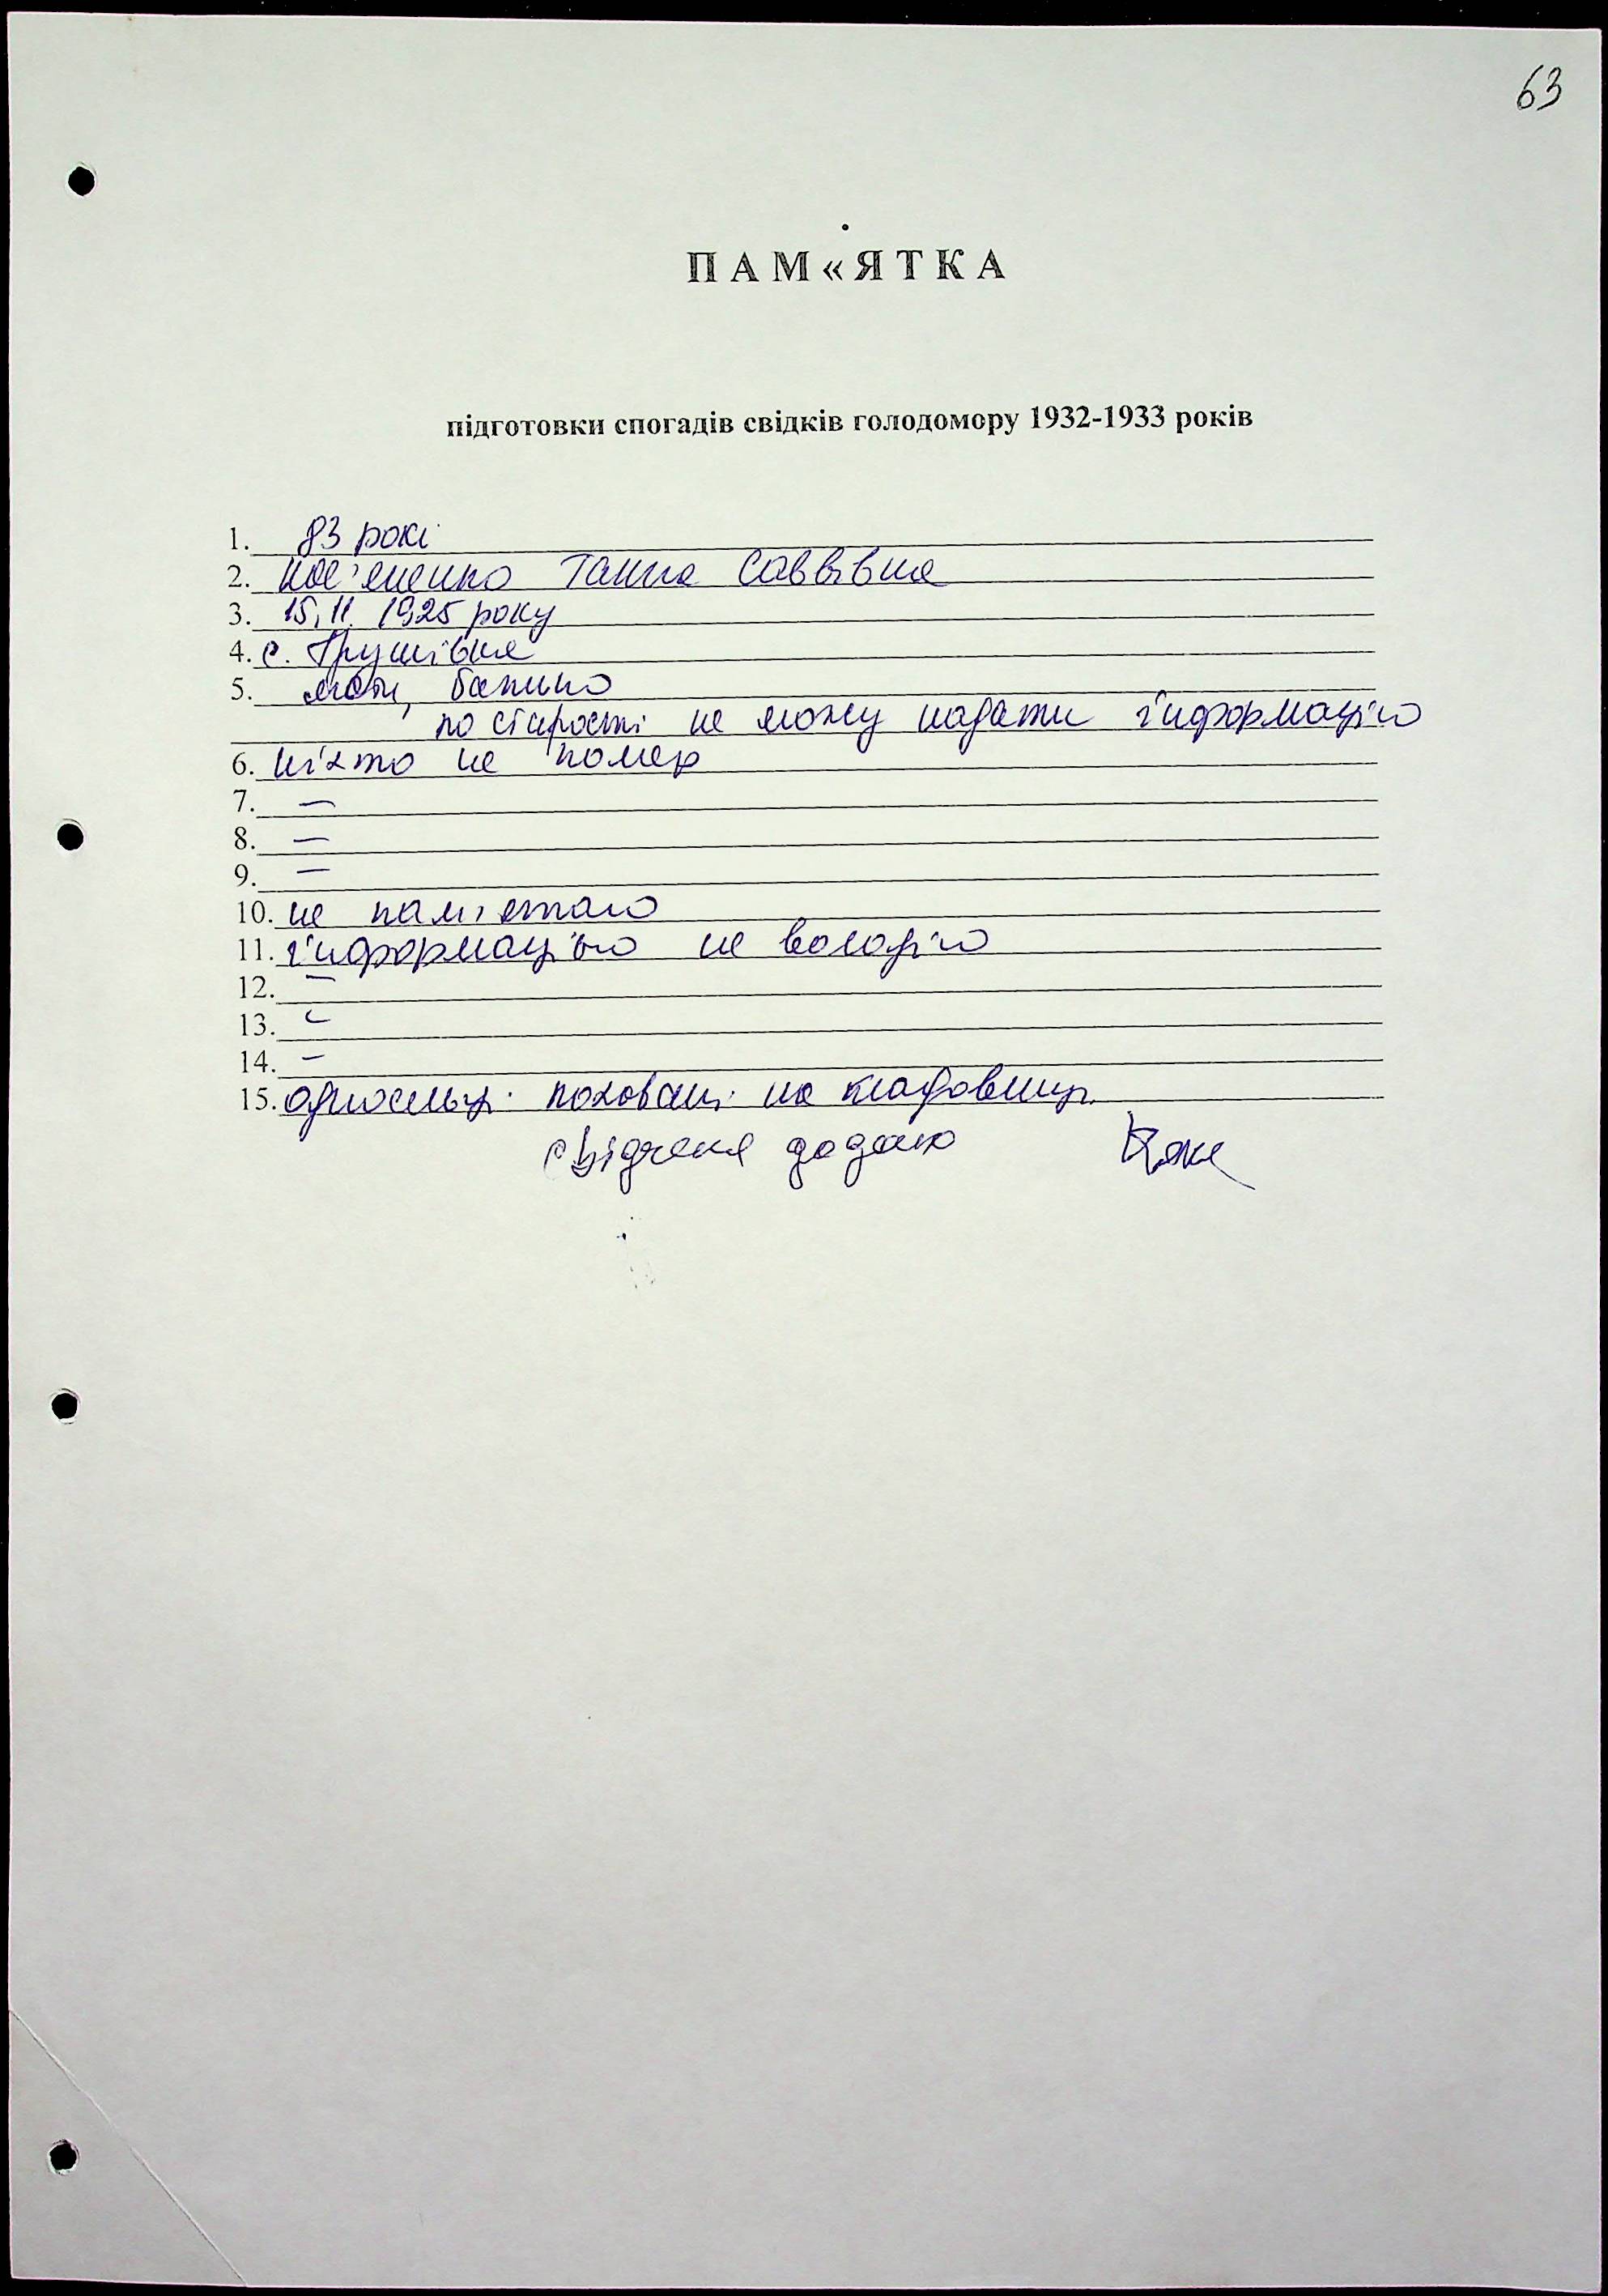 63
ПАМ«ЯТКА
підготовки спогадів свідків голодомору 1932-1933 років
1. 83 рокі
2. Ганна Саввівна
3. 15.11. 1925 року
4. с. Грушівка
5. мати, батько
по старості не можу надати інформацію
6. ніхто не помер
7. —
8. —
9. —
10. не пам'ятаю
11. інформацією не володію
12. —
13. —
14. —
15. односельці поховані на кладовищі.
свідченя додаю